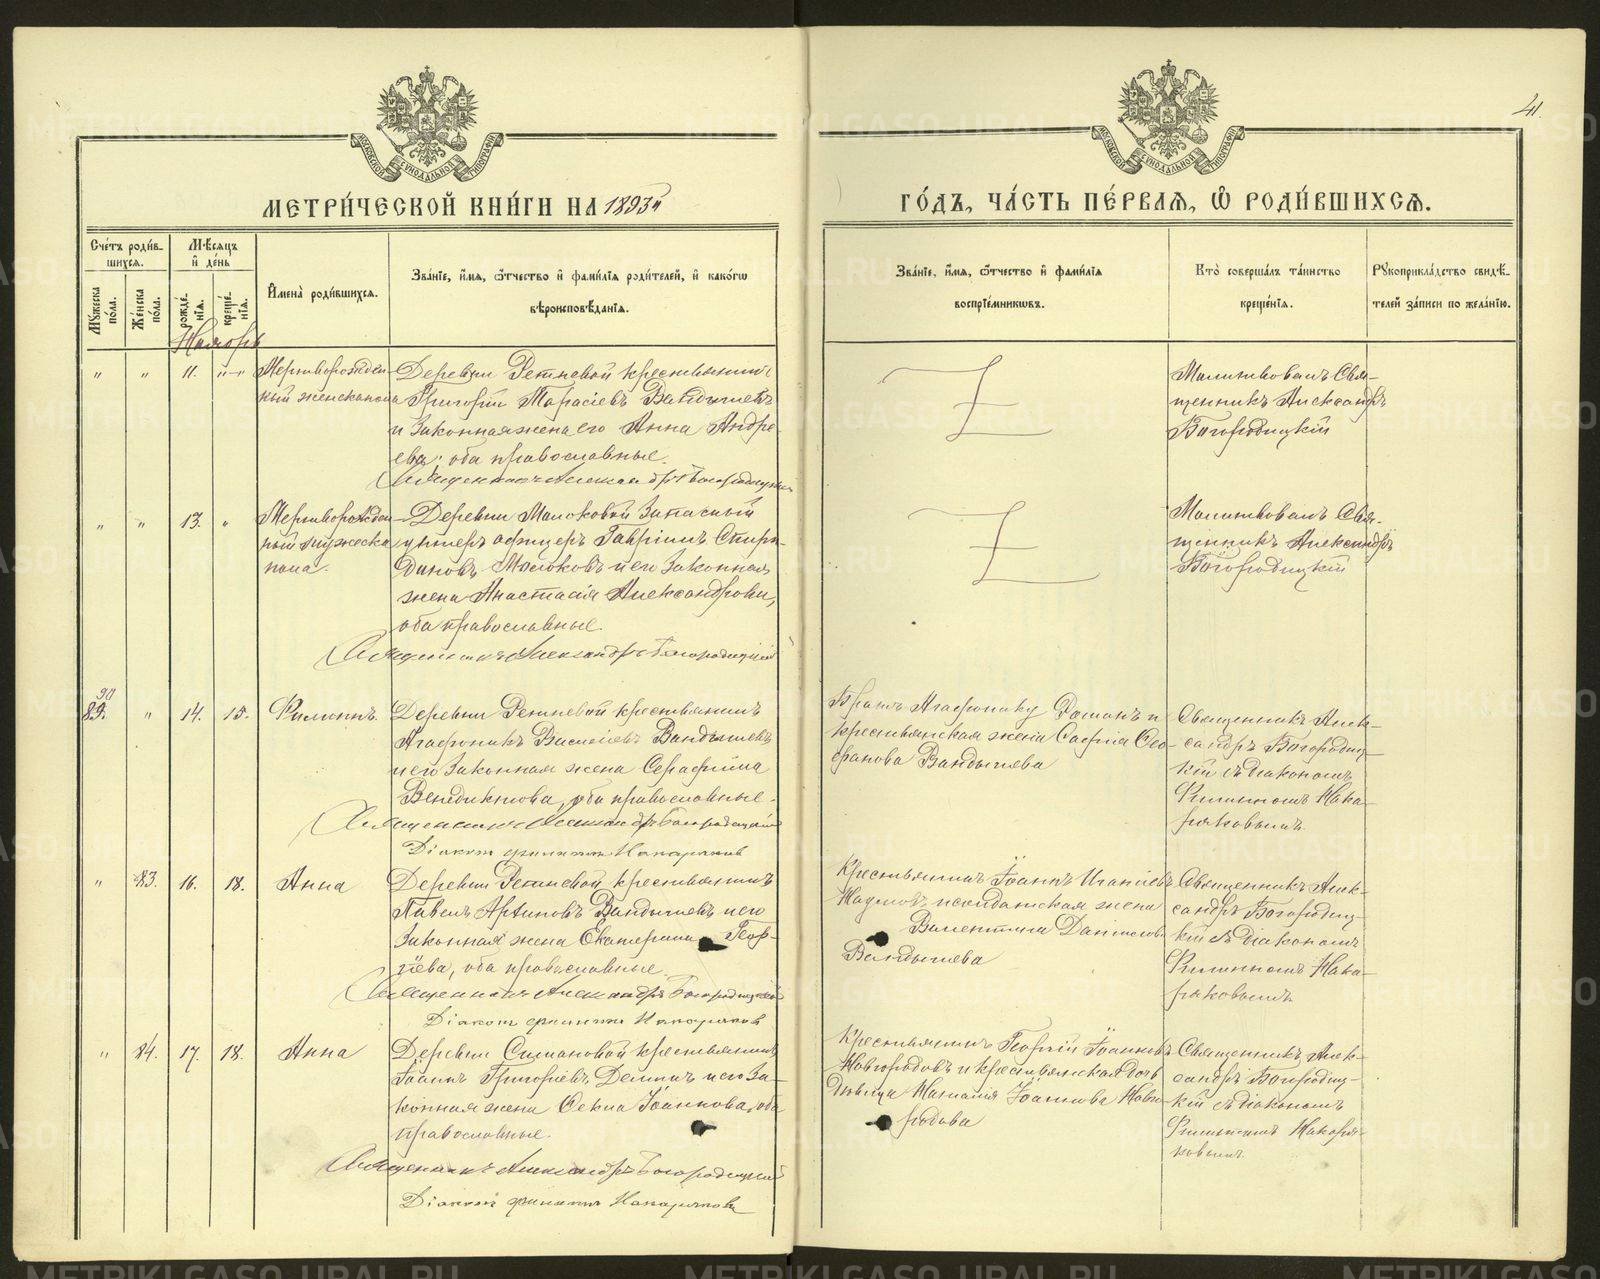 41.
МОСКОВСКОЙ СѴНОДАЛЬНОЙ ТИПОГРАФІИ
МОСКОВСКОЙ СѴНОДАЛЬНОЙ ТИПОГРАФІИ
МЕТРИ́ЧЕСКОЙ КНИ́ГИ НА 1893й
ГО́ДЪ, ЧА́СТЬ ПЕ́РВАЯ, Ѡ РОДИ́ВШИХСЯ.
Сче́тъ роди́в-
шихся.
Мꙋ́жеска по́ла.
Же́нска по́ла.
Мѣ́сяцъ и де́нь
рожде́нїя.
креще́нїя.
Имена̀ роди́вшихся.
Зва́нїе, и́мя, ѻ́тчество и фами́лїя роди́телей, и како́гѡ
вѣроисповѣ́данїя.
Зва́нїе, и́мя, ѻ́тчество и фами́лїя
воспрїе́мникѡвъ.
Кто̀ соверша́лъ та́инство
креще́нїя.
Рꙋкоприкла́дство свидѣ́-
телей за́писи по жела́нїю.
Ноябрь
" " 11. "-"
Мертворожден-
ный женска пола
Деревни Ретневой крестьянинъ
Григорій Тарасіевъ Вандышевъ
и законная жена его Анна Андре-
ева, оба православные.
Священникъ Александръ Богородицкій
Молитвовалъ Свя-
щенникъ Александръ
Богородицкій
" " 13. "
Мертворожден-
ный мужеска
пола.
Деревни Молоковой Запасный
унтеръ офицеръ Гавріилъ Спири-
доновъ Молоковъ и его законная
жена Анастасія Александрова,
оба православные.
Священникъ Александръ Богородицкій
Молитвовалъ Свя-
щенникъ Александръ
Богородицкій
90
89. " 14. 15. Филиппъ.
Деревни Ретневой крестьянинъ
Агафоникъ Василіевъ Вандышевъ
и его законная жена Серафима
Венедиктова, оба православные.
Священникъ Александръ Богородицкій
Діаконъ Филиппъ Накоряковъ
Братъ Агафонику Романъ и
крестьянская жена Софія Сео-
фанова Вандышева
Священникъ Алек-
сандръ Богородиц-
кій съ діакономъ
Филиппомъ Нако-
ряковымъ.
" 83. 16. 18. Анна
Деревни Ретневой крестьянинъ
Павелъ Вандышевъ и его
законная жена Екатерина Геор-
гіева, оба православные.
Священникъ Александръ Богородицкій
Діаконъ Филиппъ Накоряковъ
Крестьянинъ Іоаннъ Игнатіевъ
жена
Валентина Данилова
Вандышева
Священникъ Алек-
сандръ Богородиц-
кій съ діакономъ
Филиппомъ Нако-
ряковымъ
" 84. 17. 18. Анна
Деревни Симановой крестьянинъ
Іоаннъ Григоріевъ Деминъ и его за-
конная жена Фекла Іоаннова, оба
православные.
Священникъ Александръ Богородицкій
Діаконъ Филиппъ Накоряковъ
Крестьянинъ Георгій Іоанновъ
Новгородовъ и крестьянская дочь
Дѣвица Наталія Іоаннова Новго-
родова
Священникъ Алек-
сандръ Богородиц-
кій съ діакономъ
Филиппомъ Накоря-
ковымъ.
METRIKI.GASO-URAL.RU